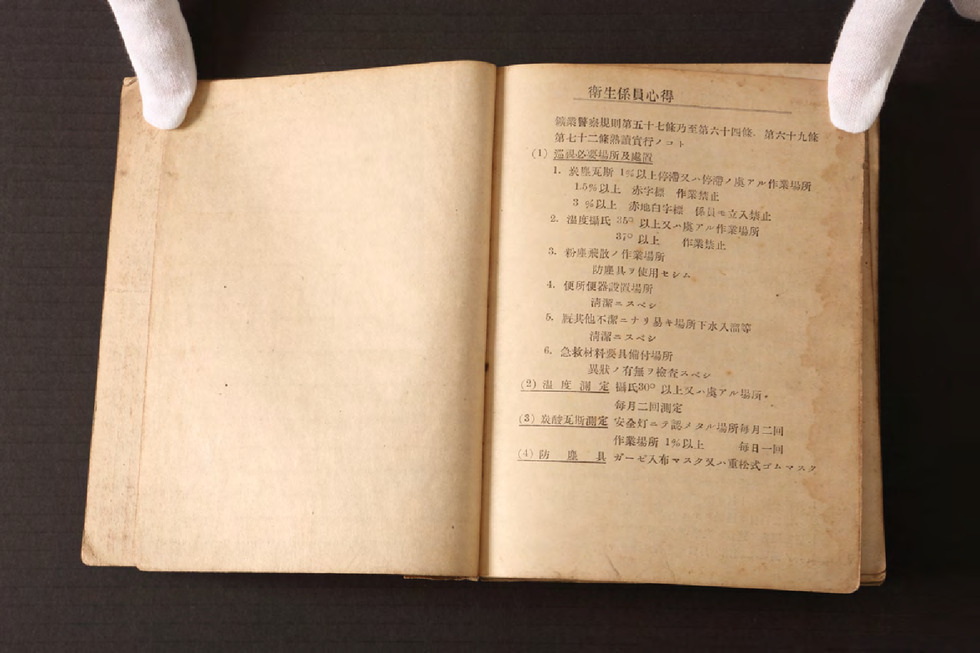 衛生係員心得
鑛業警察規則第五十七條乃至第六十四條、第六十九條
第七十二條熟讀實行ノコト
(1) 巡視必要場所及處置
1. 炭塵瓦斯 1%以上停滯又ハ停滯ノ虞アル作業場所
1.5%以上 赤字標 作業禁止
3 %以上 赤地白字標 係員モ立入禁止
2. 温度攝氏 35° 以上又ハ虞アル作業場所
37° 以上 作業禁止
3. 粉塵飛散ノ作業場所
防塵具ヲ使用セシム
4. 便所便器設置場所
清潔ニスベシ
5. 其他不潔ニナリ易キ場所下水入溜等
清潔ニスベシ
6. 急救材料要具備付場所
異狀ノ有無ヲ檢査スベシ
(2) 温度測定 攝氏30° 以上又ハ虞アル場所。
毎月二回測定
(3) 炭酸瓦斯測定 安全灯ニヲ認メタル場所毎月二回
作業場所 1%以上 毎日一回
(4) 防塵具 ガーゼ入布マスク又ハ重松式ゴムマスク